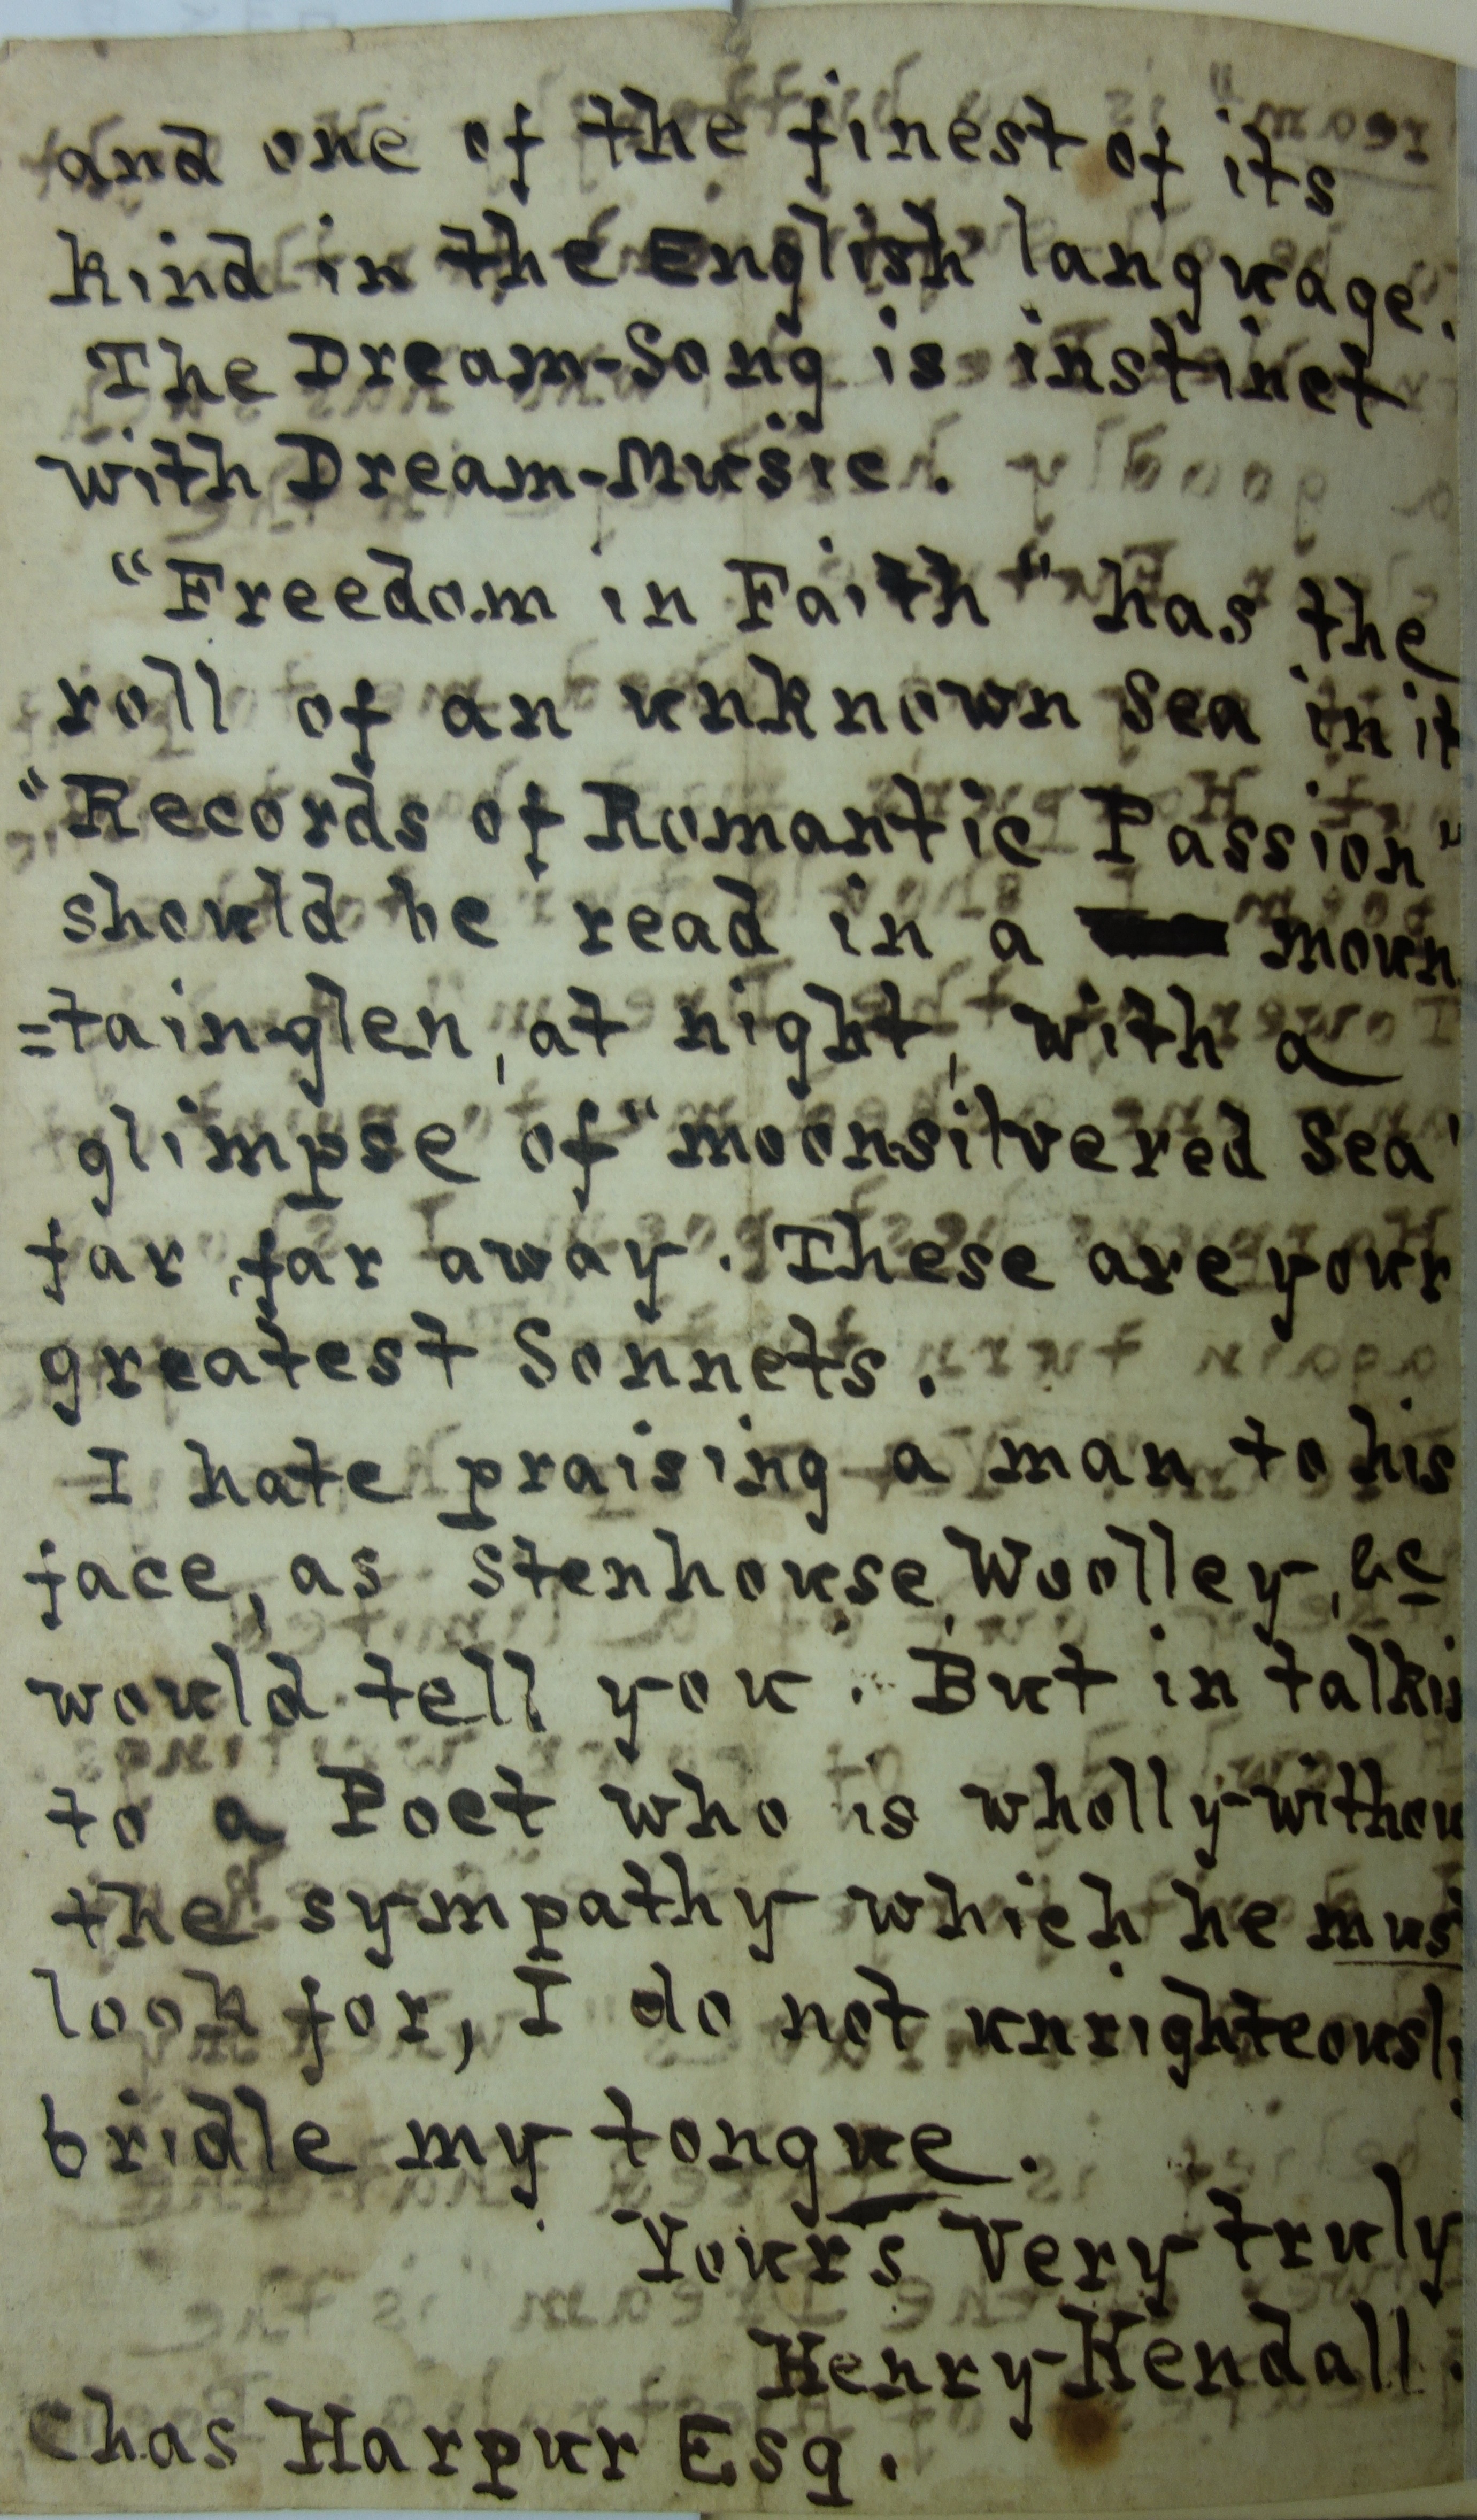 and one of the finest of its
kind in the English language.
The Dream-Song is instinct
with Dream-Music.
"Freedom in Faith" has the
roll of an unknown Sea in it
"Records of Romantic Passion"
should be read in a moun
=tain-glen, at night, with a
glimpse of "moonsilvered Sea"
far, far away. These are your
greatest Sonnets.
I hate praising a man to his
face, as Stenhouse, Woolley, &c
would tell you. But in talki
to a Poet who is wholly withou
the sympathy which he mus
look for, I do not unrighteously
bridle my tongue.
Yours Very truly
Henry Kendall.
Chas Harpur Esq.